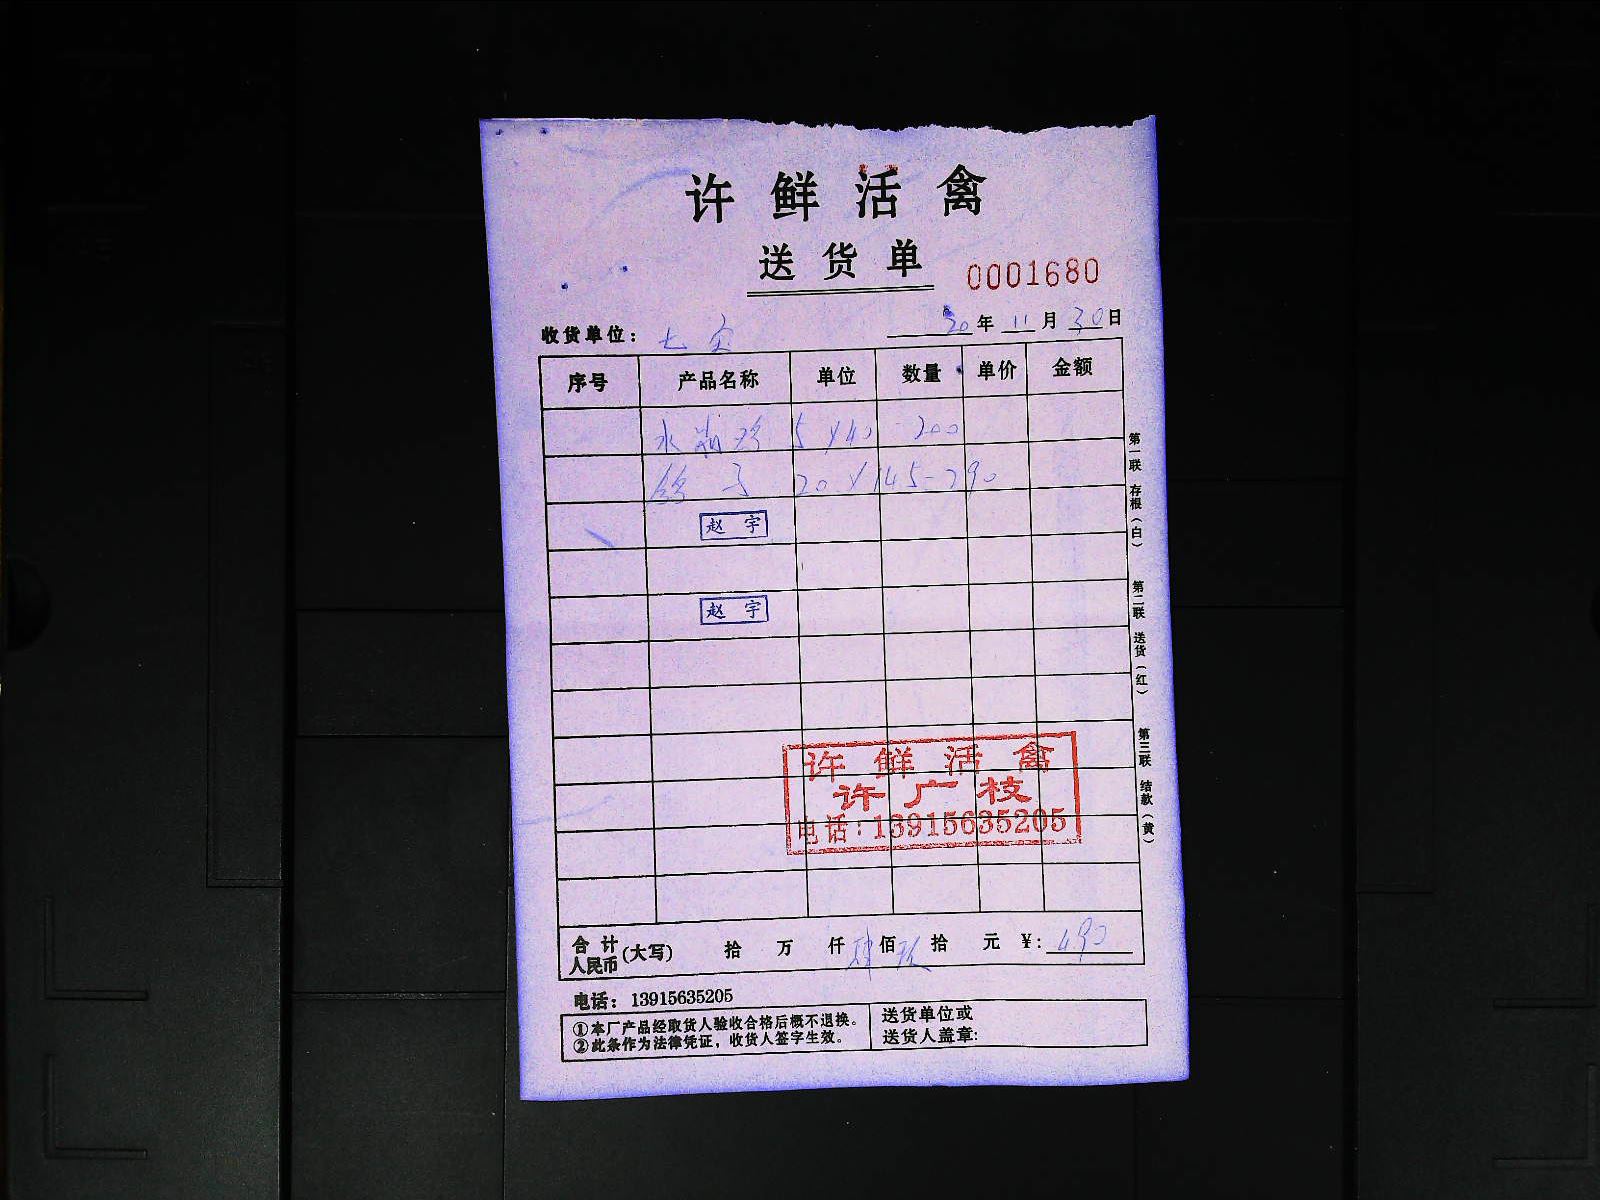 许鲜活禽
送货单
0001680
收货单位：七 20年11月30日
序号 产品名称 单位 数量 单价 金额
水 5×40-200
鸽子 20×14.5-290
赵宇
赵宇
许鲜活禽
许广枝
电话：13915635205
合计人民币(大写) 拾 万 仟 肆佰 玖拾 元 ¥：490
电话：13915635205
①本厂产品经取货人验收合格后概不退换。
②此条作为法律凭证，收货人签字生效。
送货单位或
送货人盖章：
第一联 存根（白）
第二联 送货（红）
第三联 结款（黄）